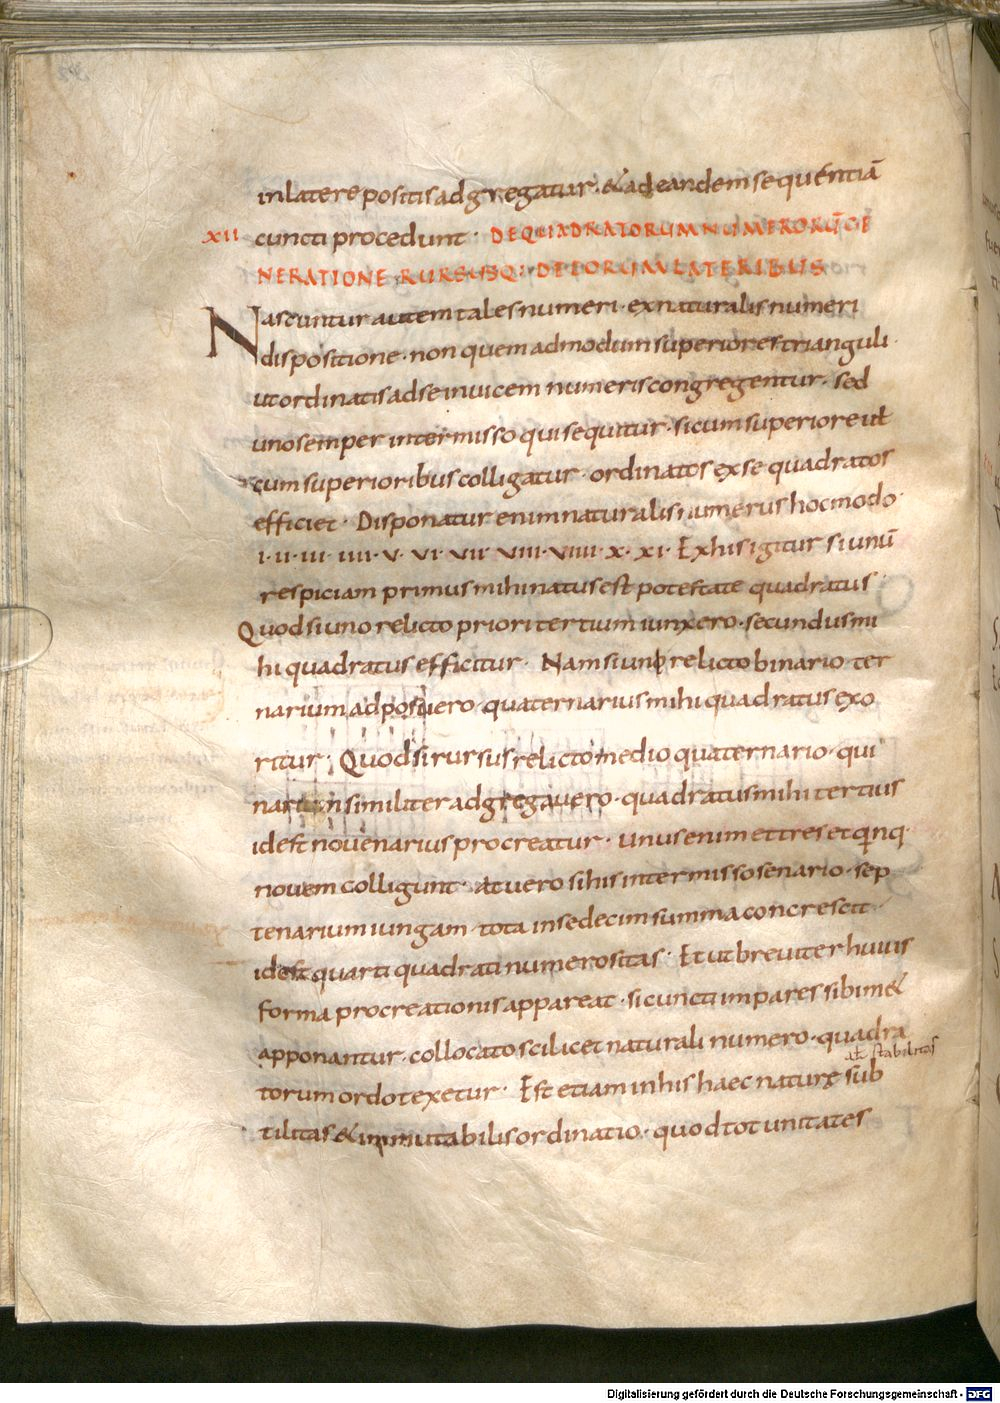 in latere positis adgregatur · & ad eandem sequentiā
XII cuncti procedunt · DE QUADRATORUM NUMERORŪ GE
NERATIONE RURSUSQ: DE EORUM LATERIBUS
Nascuntur autem tales numeri · ex naturalis numeri
dispositione · non quem admodum superiores trianguli ·
ut ordinatis ad se invicem numeris congregentur · sed
uno semper intermisso qui sequitur · si cum superiore ut
cum superioribus colligatur · ordinatos ex se quadratos
efficiet · Disponatur enim naturalis numerus hoc modo ·
I · II · III · IIII · V · VI · VII · VIII · VIIII · X · XI · Ex his igitur si unū
respiciam primus mihi natus est potestate quadratus ·
Quod si uno relicto priori tertium iunxero · secundus mi
hi quadratus efficitur · Nam si uni relicto binario ter
narium adposuero · quaternarius mihi quadratus exo
ritur · Quod si rursus relicto medio quaternario · qui
narium similiter adgregavero · quadratus mihi tertius
id est novenarius procreatur · unus enim et tres et qinq ·
novem colligunt · At vero si his intermisso senario · sep
tenarium iungam · tota in sedecim summa concrescit ·
id est quarti quadrati numerositas · Et ut breviter huius
forma procreationis appareat · si cuncti impares sibim&
apponantur · collocato scilicet naturali numero · quadra
at stabilitas
torum ordo texetur · Est etiam in his haec naturę sub
tilitas & immutabilis ordinatio · quod tot unitates
Digitalisierung gefördert durch die Deutsche Forschungsgemeinschaft - DFG